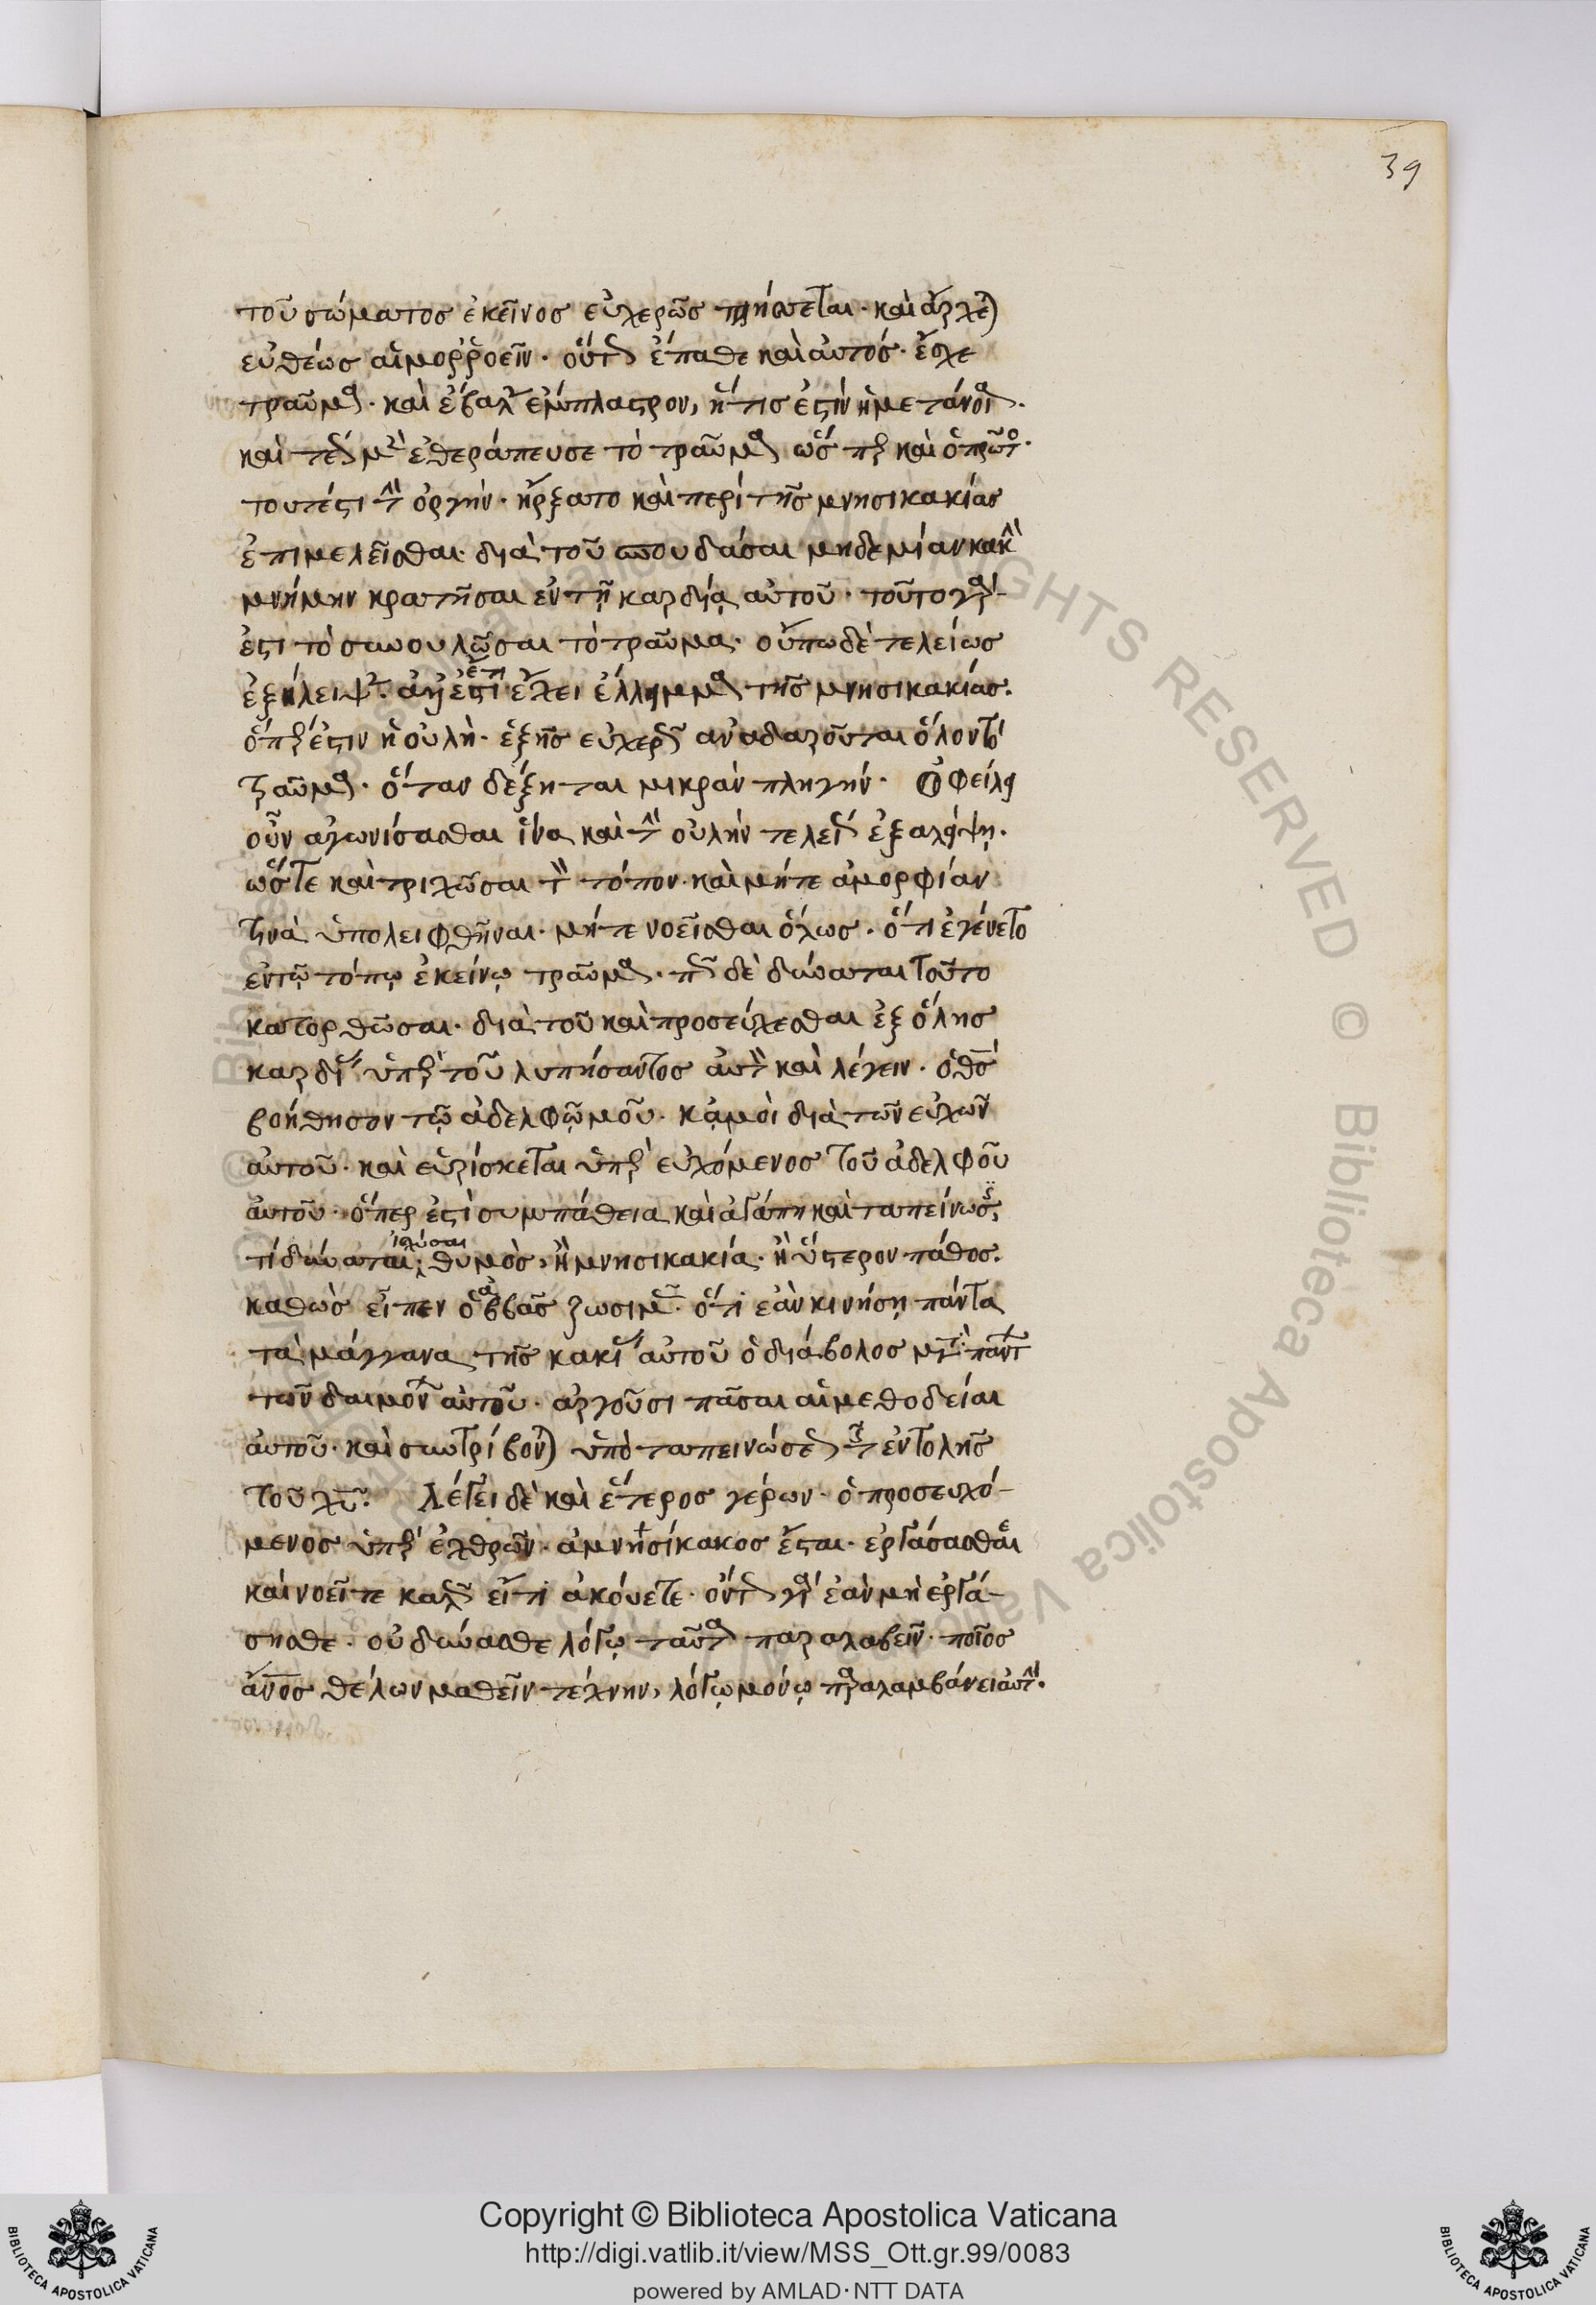 39
τοῦ σώματος ἐκεῖνος εὐχερῶς πλήττεται· καὶ ἄρχεται
εὐθέως αἱμορροεῖν· οὕτως ἔπαθε καὶ αὐτός· ἔσχε
τραῦμα· καὶ ἔβαλεν ἔμπλαστρον, ἥτις ἐστὶν ἡ μετάνοια·
καὶ τέως μὲν ἐθεράπευσε τὸ τραῦμα ὥσπερ καὶ ὁ πρῶτος·
τουτέστι τὴν ὀργήν· ἤρξατο καὶ περὶ τῆς μνησικακίας
ἐπιμελεῖσθαι· διὰ τοῦ σπουδάσαι μηδεμίαν κακὴν
μνήμην κρατῆσαι ἐν τῇ καρδίᾳ αὐτοῦ· τοῦτο γάρ
ἐστι τὸ συνουλῶσαι τὸ τραῦμα· οὔπω δὲ τελείως
ἐξήλειψεν· ἀλλ' ἔτι ἔχει ἔλλημμα τῆς μνησικακίας·
ὅπερ ἐστὶν ἡ οὐλή· ἐξ ἧς εὐχερῶς ἀναδαροῦται ὅλον τὸ
τραῦμα· ὅταν δέξηται μικρὰν πληγήν· Ὀφείλει
οὖν ἀγωνίσασθαι ἵνα καὶ τὴν οὐλὴν τελείως ἐξαλείψῃ·
ὥστε καὶ τριχῶσαι τὸν τόπον· καὶ μήτε ἀμορφίαν
τινὰ ὑπολειφθῆναι· μήτε νοεῖσθαι ὅλως· ὅτι ἐγένετο
ἐν τῷ τόπῳ ἐκείνῳ τραῦμα· πῶς δὲ δύναται τοῦτο
κατορθῶσαι· διὰ τοῦ καὶ προσεύχεσθαι ἐξ ὅλης
καρδίας ὑπὲρ τοῦ λυπήσαντος αὐτὸν καὶ λέγειν· ὁ θς
βοήθησον τῷ ἀδελφῷ μοῦ· κᾀμοὶ διὰ τῶν εὐχῶν
αὐτοῦ· καὶ εὑρίσκεται ὑπερευχόμενος τοῦ ἀδελφοῦ
αὐτοῦ· ὅπερ ἐστὶ συμπάθεια καὶ ἀγάπη καὶ ταπείνωσις,
τί δύναται ἰσχύσαι θυμὸς, ἢ μνησικακία· ἢ ὕστερον πάθος·
καθὼς εἶπεν ὁ ἀββᾶς ζωσιμᾶς· ὅτι ἐὰν κινήσῃ πάντα
τὰ μάγγανα τῆς κακίας αὐτοῦ ὁ διάβολος μετὰ πάντων
τῶν δαιμόνων αὐτοῦ· ἀργοῦσι πᾶσαι αἱ μεθοδείαι
αὐτοῦ· καὶ συντρίβονται ὑπὸ ταπεινώσεως τῆς ἐντολῆς
τοῦ χυ. Λέγει δὲ καὶ ἕτερος γέρων· ὁ προσευχό-
μενος ὑπὲρ ἐχθρῶν· ἀμνησίκακος ἔσται· ἐργάσασθαι
καὶ νοεῖτε καλῶς εἴ τι ἀκούετε· ὄντως γὰρ ἐὰν μὴ ἐργά-
σησθε· οὐ δύνασθε λόγῳ ταῦτα παραλαβεῖν· ποῖος
ἄνος θέλων μαθεῖν τέχνην, λόγῳ μόνῳ παραλαμβάνει αὐτήν·
Copyright © Biblioteca Apostolica Vaticana
http://digi.vatlib.it/view/MSS_Ott.gr.99/0083
powered by AMLAD·NTT DATA